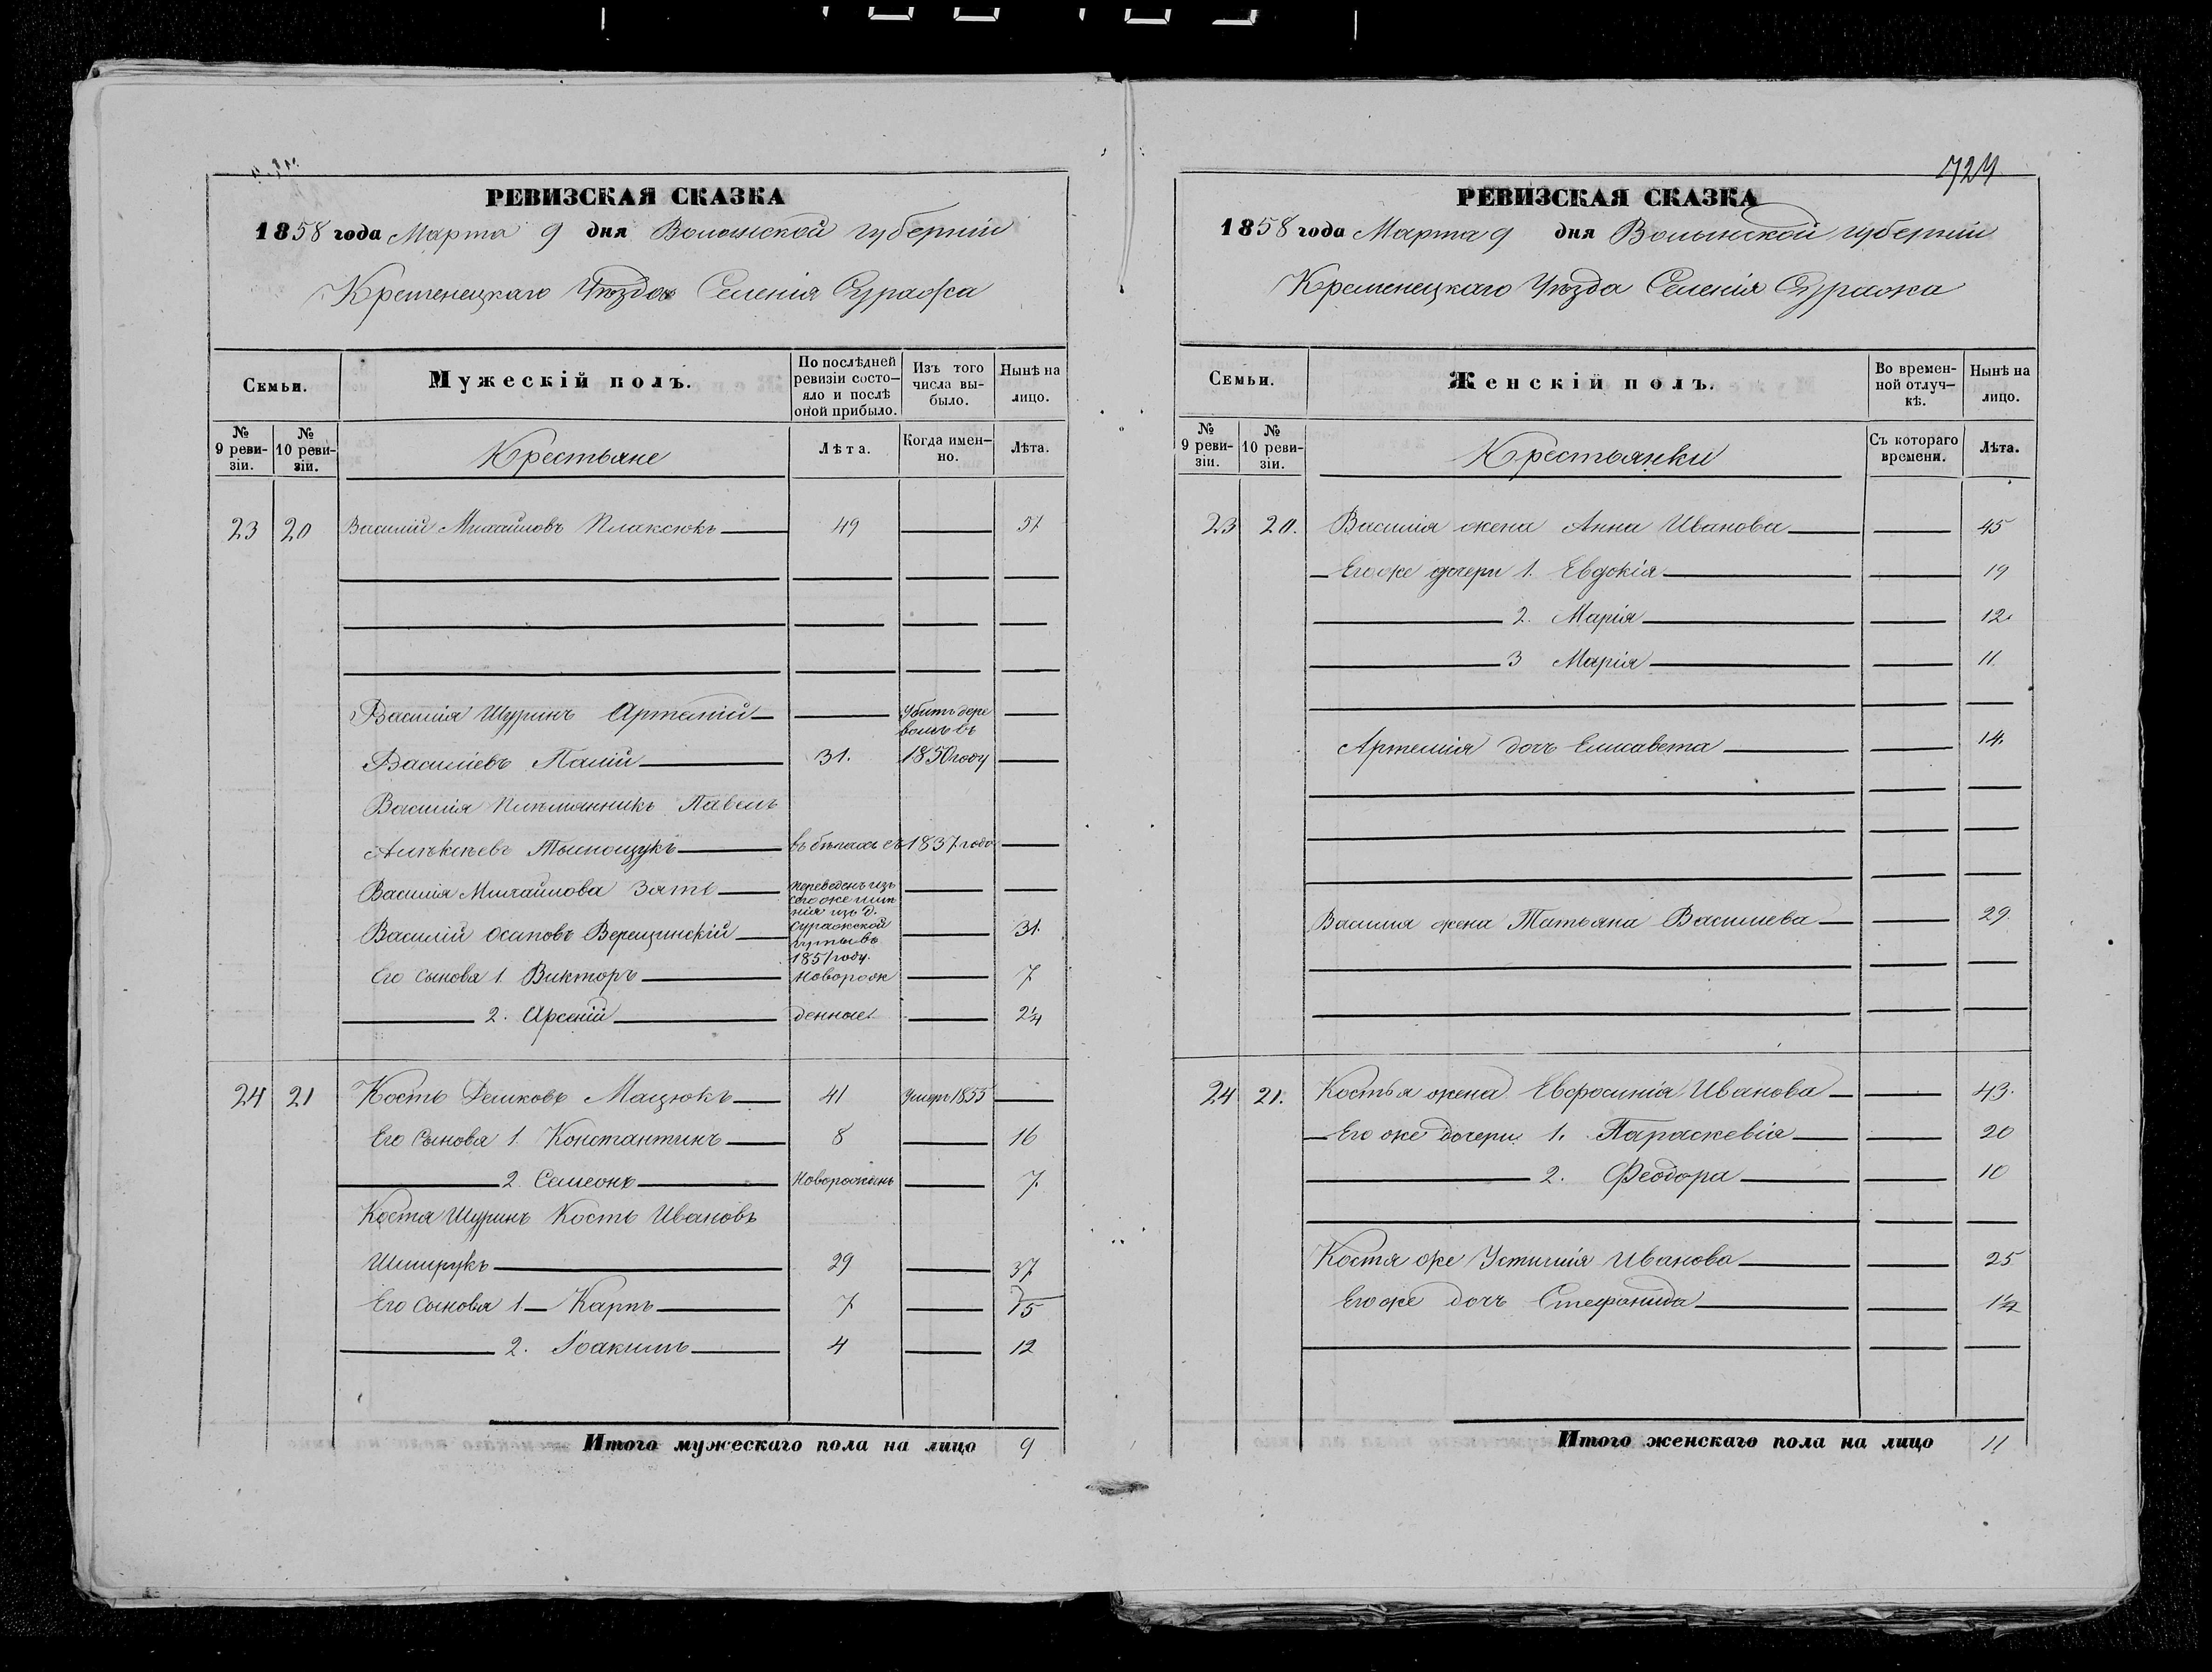 РЕВИЗСКАЯ СКАЗКА
1858 года Марта 9 дня Волынской губерніи
Кременецкаго Уѣзда Селенія Суража
Семьи.
Мужескій полъ.
По послѣдней ревизіи состо-
яло и послѣ оной прибыло.
Изъ того числа вы-
было.
Нынѣ на лицо.
№ 9 реви-
зіи.
№ 10 реви-
зіи.
Крестьяне
Лѣта.
Когда имен-
но.
Лѣта.
23 20 Василій Михайловъ Плаксюкъ 49 57
Василія Шуринъ Артемій убитъ дере
вомъ въ
Василіевъ Палій 31. 1850 году
Василія Племянникъ Павелъ
Алѣксѣевъ Тымощукъ въ бѣгахъ съ 1837 года
Василія Михайлова Зять переведенъ изъ
сего же имѣ
нія изъ д.
Василій Осиповъ Верещинскій Суражской 31.
Гуты въ
1851 году.
Его сыновя 1. Викторъ Новорож 7
2. Арсеній денные 2¼
24 21 Кость Демковъ Мацюкъ 41 Умеръ 1855
Его сыновя 1. Константинъ 8 16
2. Семеонъ Новорожденъ 7.
Костя Шуринъ Кость Ивановъ
29 37
Его сыновя 1. Карпъ 7 15
2. Іоакимъ 4 12
Итого мужескаго пола на лицо 9
724
РЕВИЗСКАЯ СКАЗКА
1858 года Марта 9 дня Волынской губерніи
Кременецкаго Уѣзда Селенія Суража
Семьи.
Женскій полъ.
Во времен-
ной отлуч-
кѣ.
Нынѣ на лицо.
№ 9 реви-
зіи.
№ 10 реви-
зіи.
Крестьянки
Съ котораго времени.
Лѣта.
23 20. Василія жена Анна Иванова 45
Его же дочери 1. Евдокія 19
2. Марія 12.
3 Марія 11.
Артемія дочь Елисавета 14.
Василия жена Татьяна Василиева 29.
24 21. Костья жена Евфросинія Иванова 43.
Его же дочери 1. Параскевія 20
2. Феодора 10
Костя же Устинія Иванова 25
Его же дочь Стефанида 1½
Итого женскаго пола на лицо 11